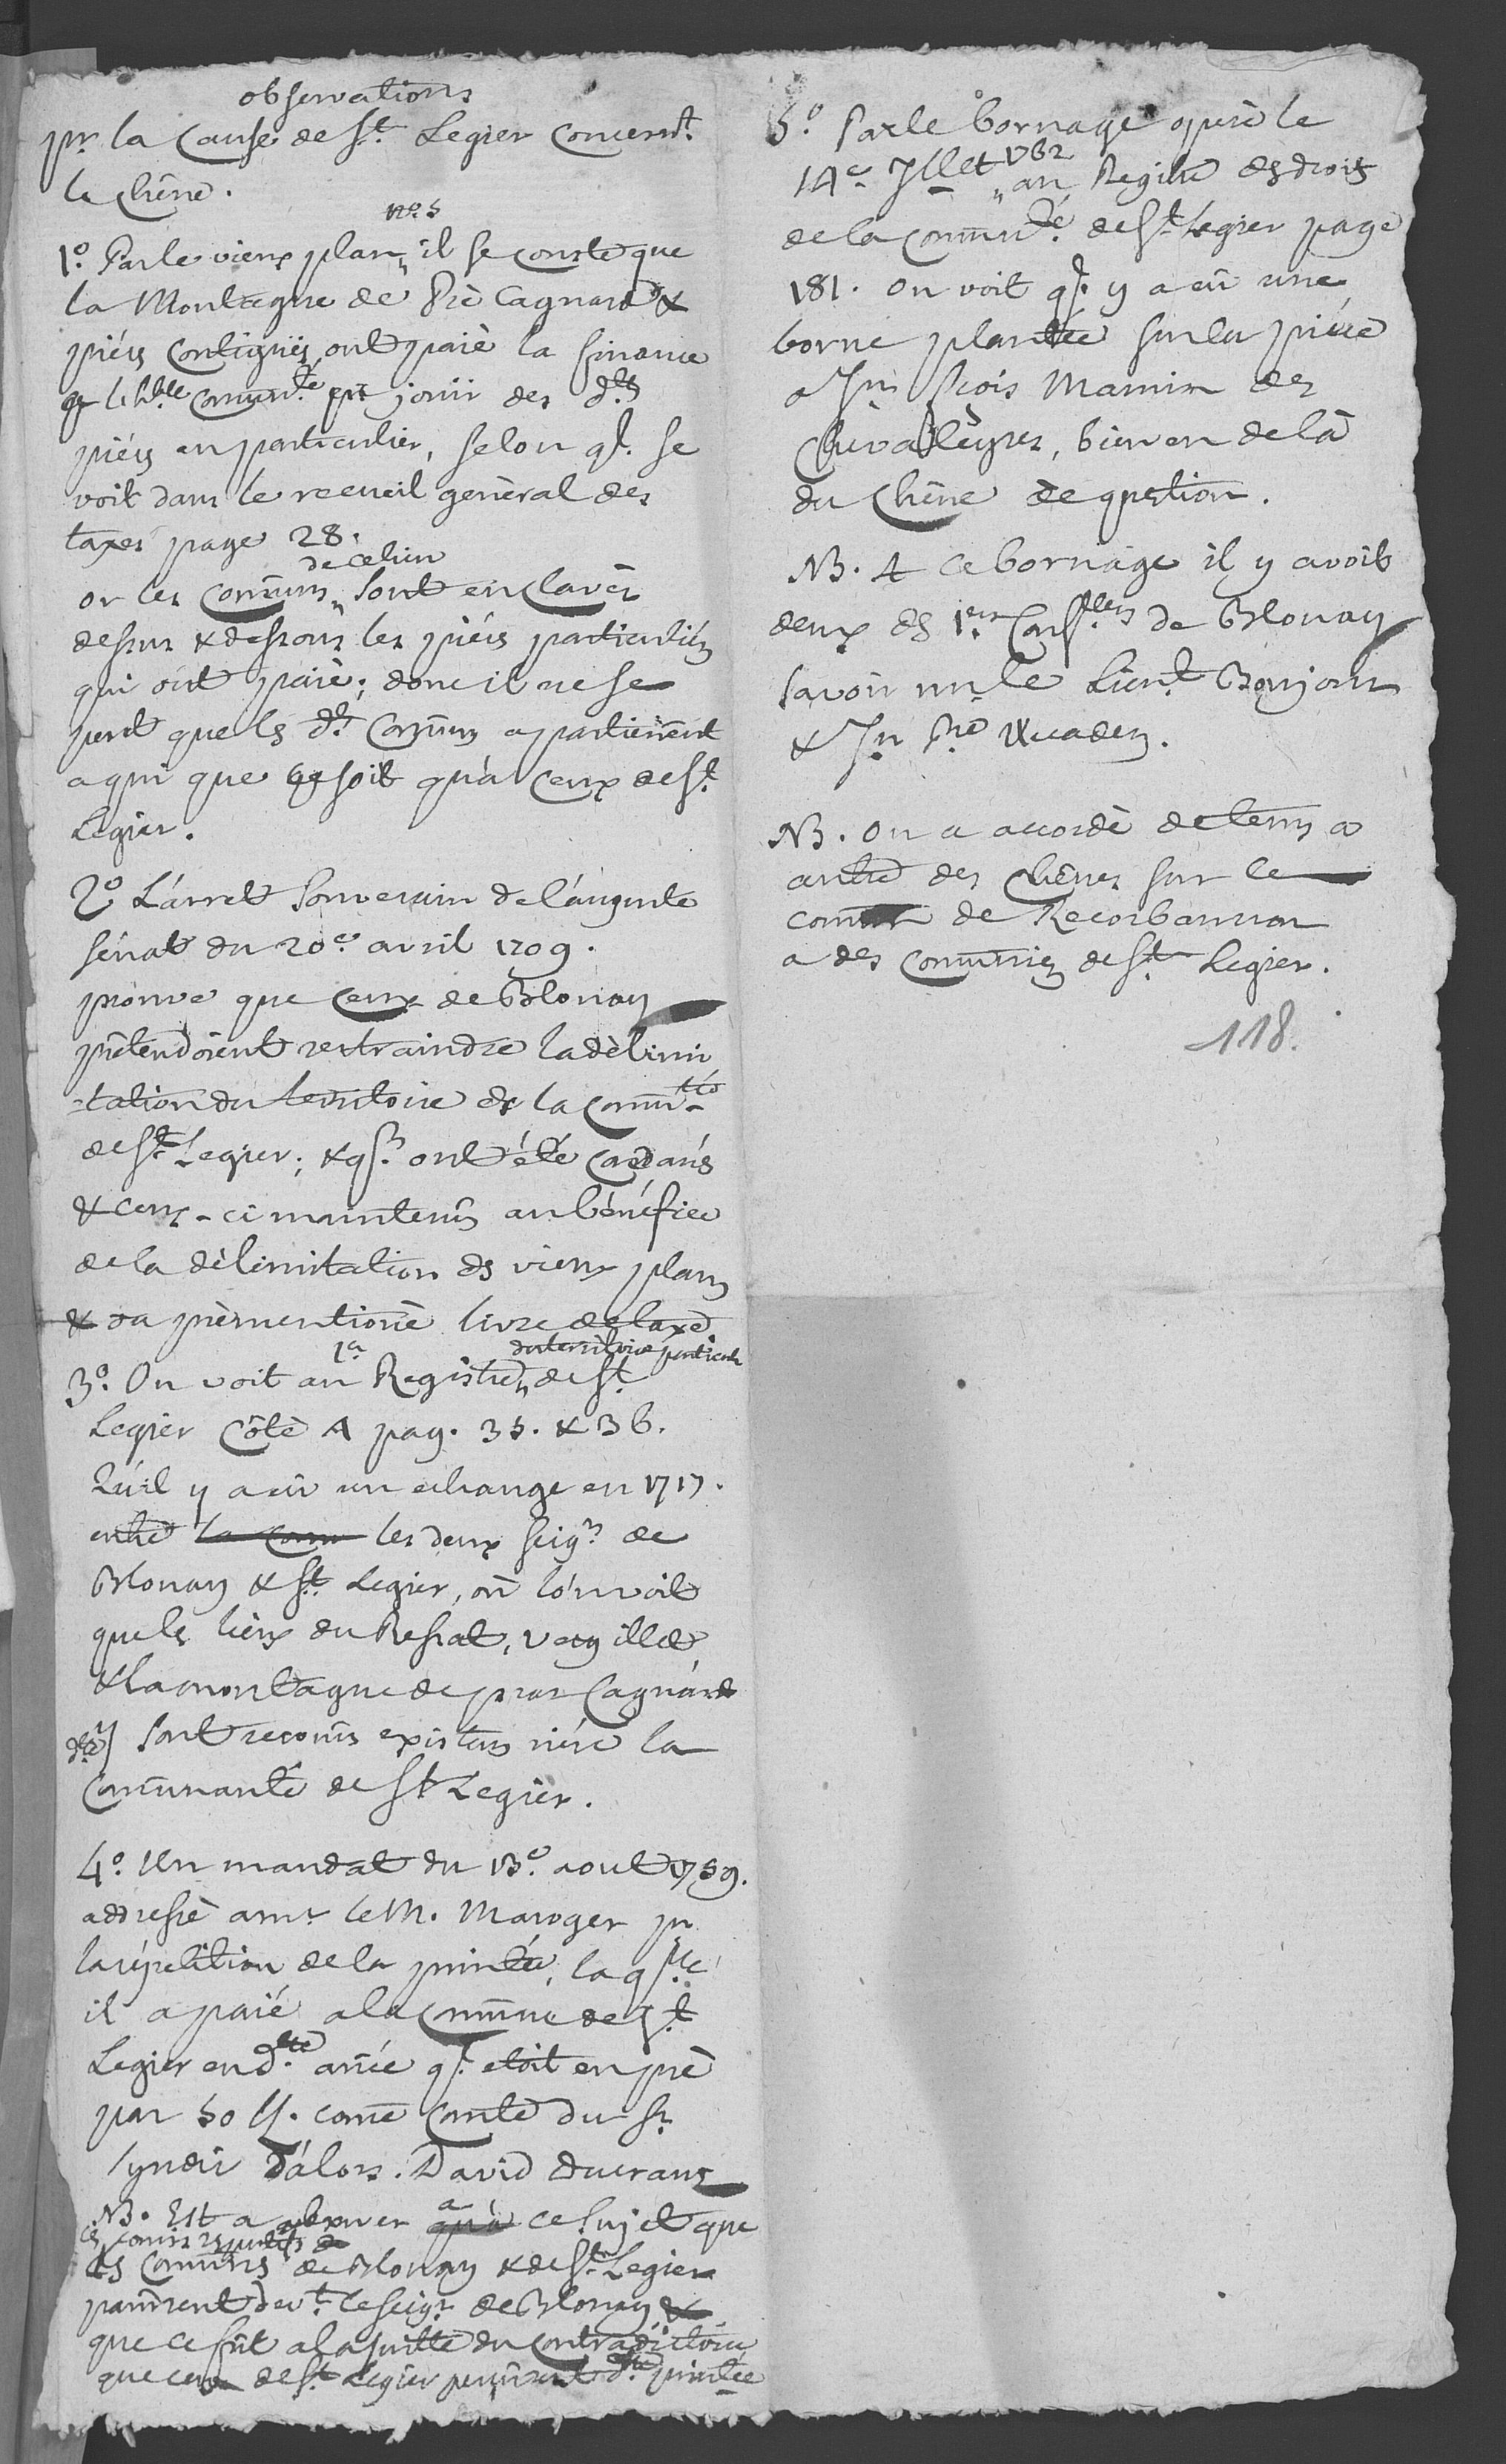 observations
pr. la Cause de St. Legier concernt.
le chêne.
n°. 5
1°. Par le vieux plan, il se conste que
la Montagne de Prè Cagnard &
piéis contigues, ont paiè la finance
comunté pr jouir des dts
piéis en particulier, selon ql. se
voit dans le recueil genèral des
taxes page 28.
de ce lieu
or les comuns sont enclavès
dessus & dessous les piéis particuliés
qui ont paiè; donc il ne se
peut que ls dt. comuns apartienent
a qui que ce soit qu'à ceux de St.
Legier.
2° L'árret Souverain de l'áuguste
sénat du 20e. avril 1709.
prouve que ceux de Blonay
prètendoient restraindre la dèlimi
-tation du territoire de la comm-té
de St. Legier; & qls. ont été condanés
& ceux-ci maintenus au bénéfice
de la dèlimitation ds vieux plans
& du prèmentionè livre de taxe
1er du territoire particulr
3°. On voit au Registre de St.
Legier côtè A pag. 35. & 36.
Qu'il y a eû un echange en 1717.
entre la com les deux seigrs de
Blonay & St. Legier, où l'on voit
que ls lieux du Ressat, Veyillet
& la montagne de praz Cagnárd
sont reconûs existans riére la
Comunauté de St Legier.
4°. Un mandat du 13e. aout 1759.
addressè a mr le M. Maroger pr
la répetition de la pintée, la qlle
il a paié a la Comune de St
Legier en dtte. anée ql. etoit en prè
par 50 ff. come conste du Sr.
Syndic d'álors. David Ducraux
NB. Est a observer qu'à a ce Sujet que
ls comis respectifs de
ls Comuns de Blonay & de St. Legier
parûrent devt. le seigr de Blonay &
que ce fût a la suitte du contradictoire
que ceux de St. Legier perçûrent dtte pintée
5°. Par le bornage opèrè le
14e. Jllet 1762 au Registre ds droits
de la Comunté. de St. Legier page
181. on voit ql. y a eû une
borne plantée sur la piéce
a Jn frçois Mamin des
Chevalleyres, bien en delà
du Chêne de question.
NB. A ce bornage il y avoit
deux ds 1ers Conslers de Blonay
savoir mr le Lieut Bonjour
& Jn
NB. on a accordè de tems a
autre des chênes sur le
comun de Recorbannaz
a des Comuniés de St. Legier.
118.